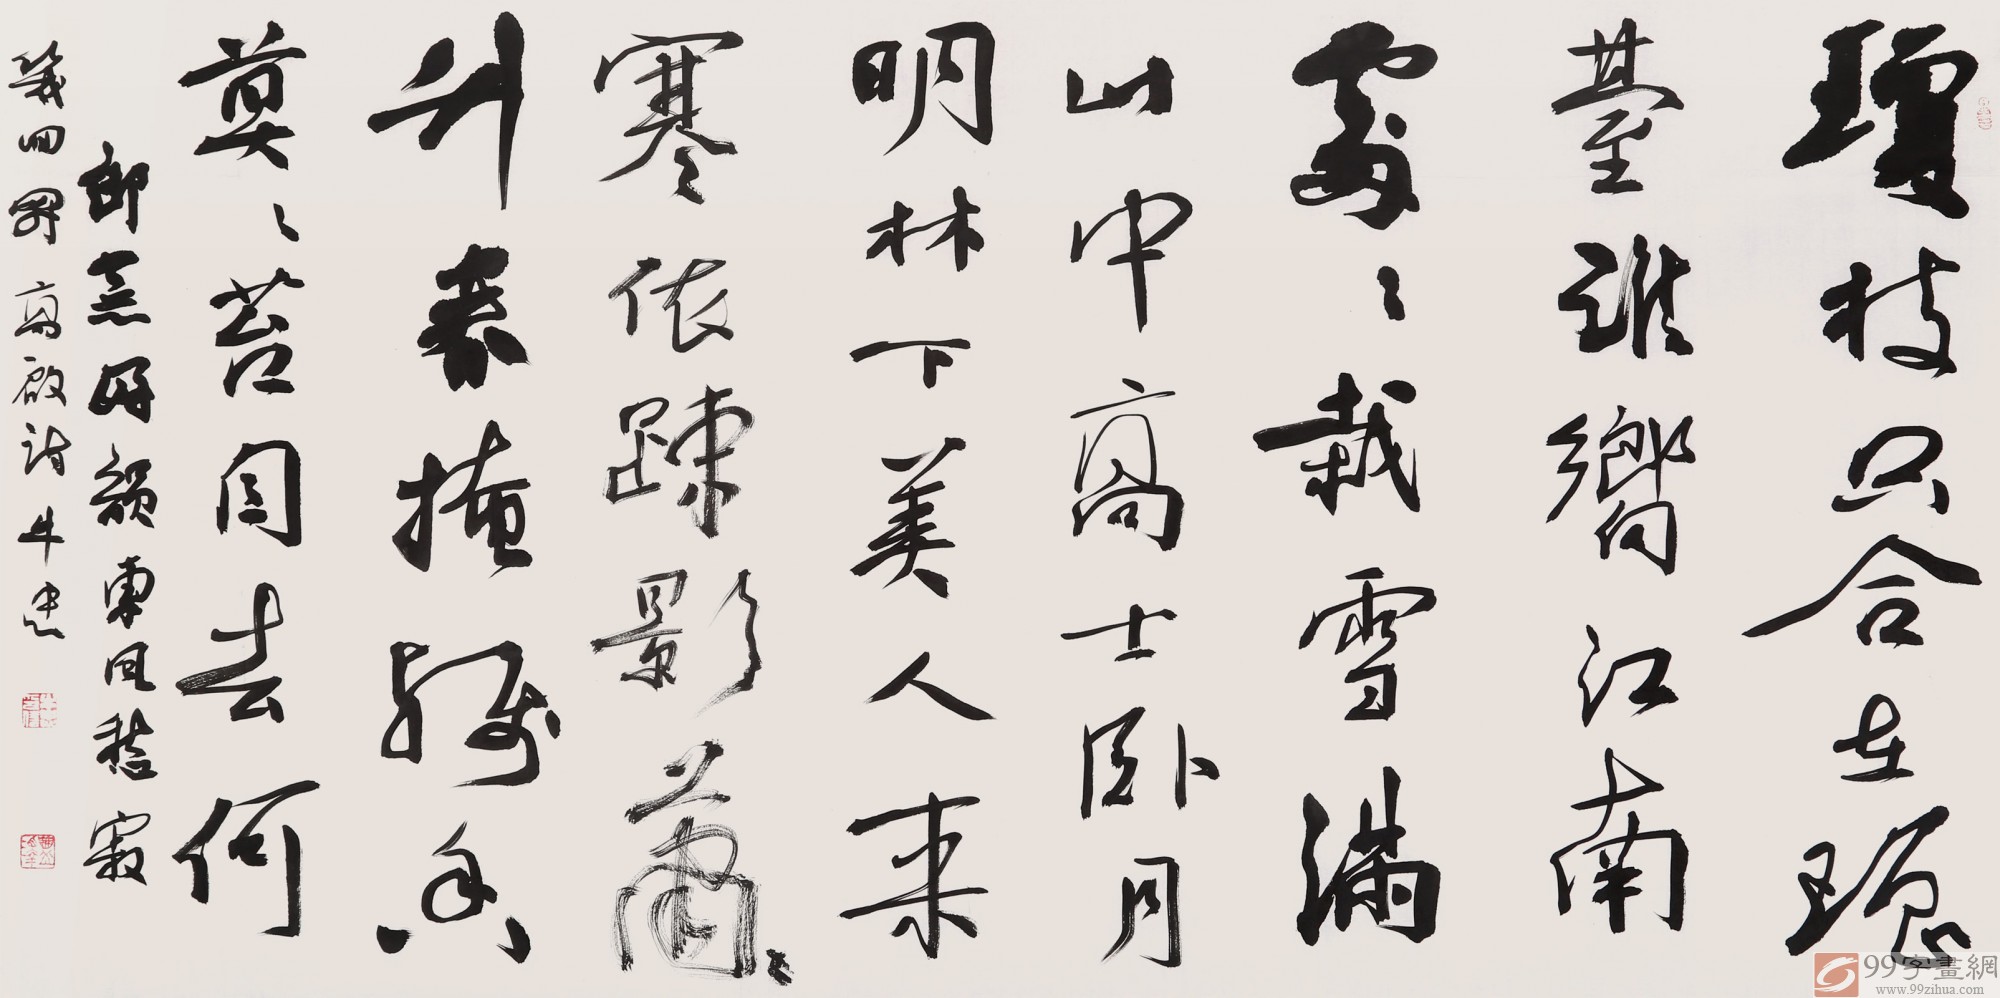 瓊枝只合在瑤
臺誰嚮江南
處〻栽雪滿
山中高士卧月
明林下美人来
寒依疎影蕭〻
竹春掩殘香
莫〻苔自去何
郎無好韻東風愁寂
幾回開 高啟詩 牛忠
99字畫網
www.99zihua.com